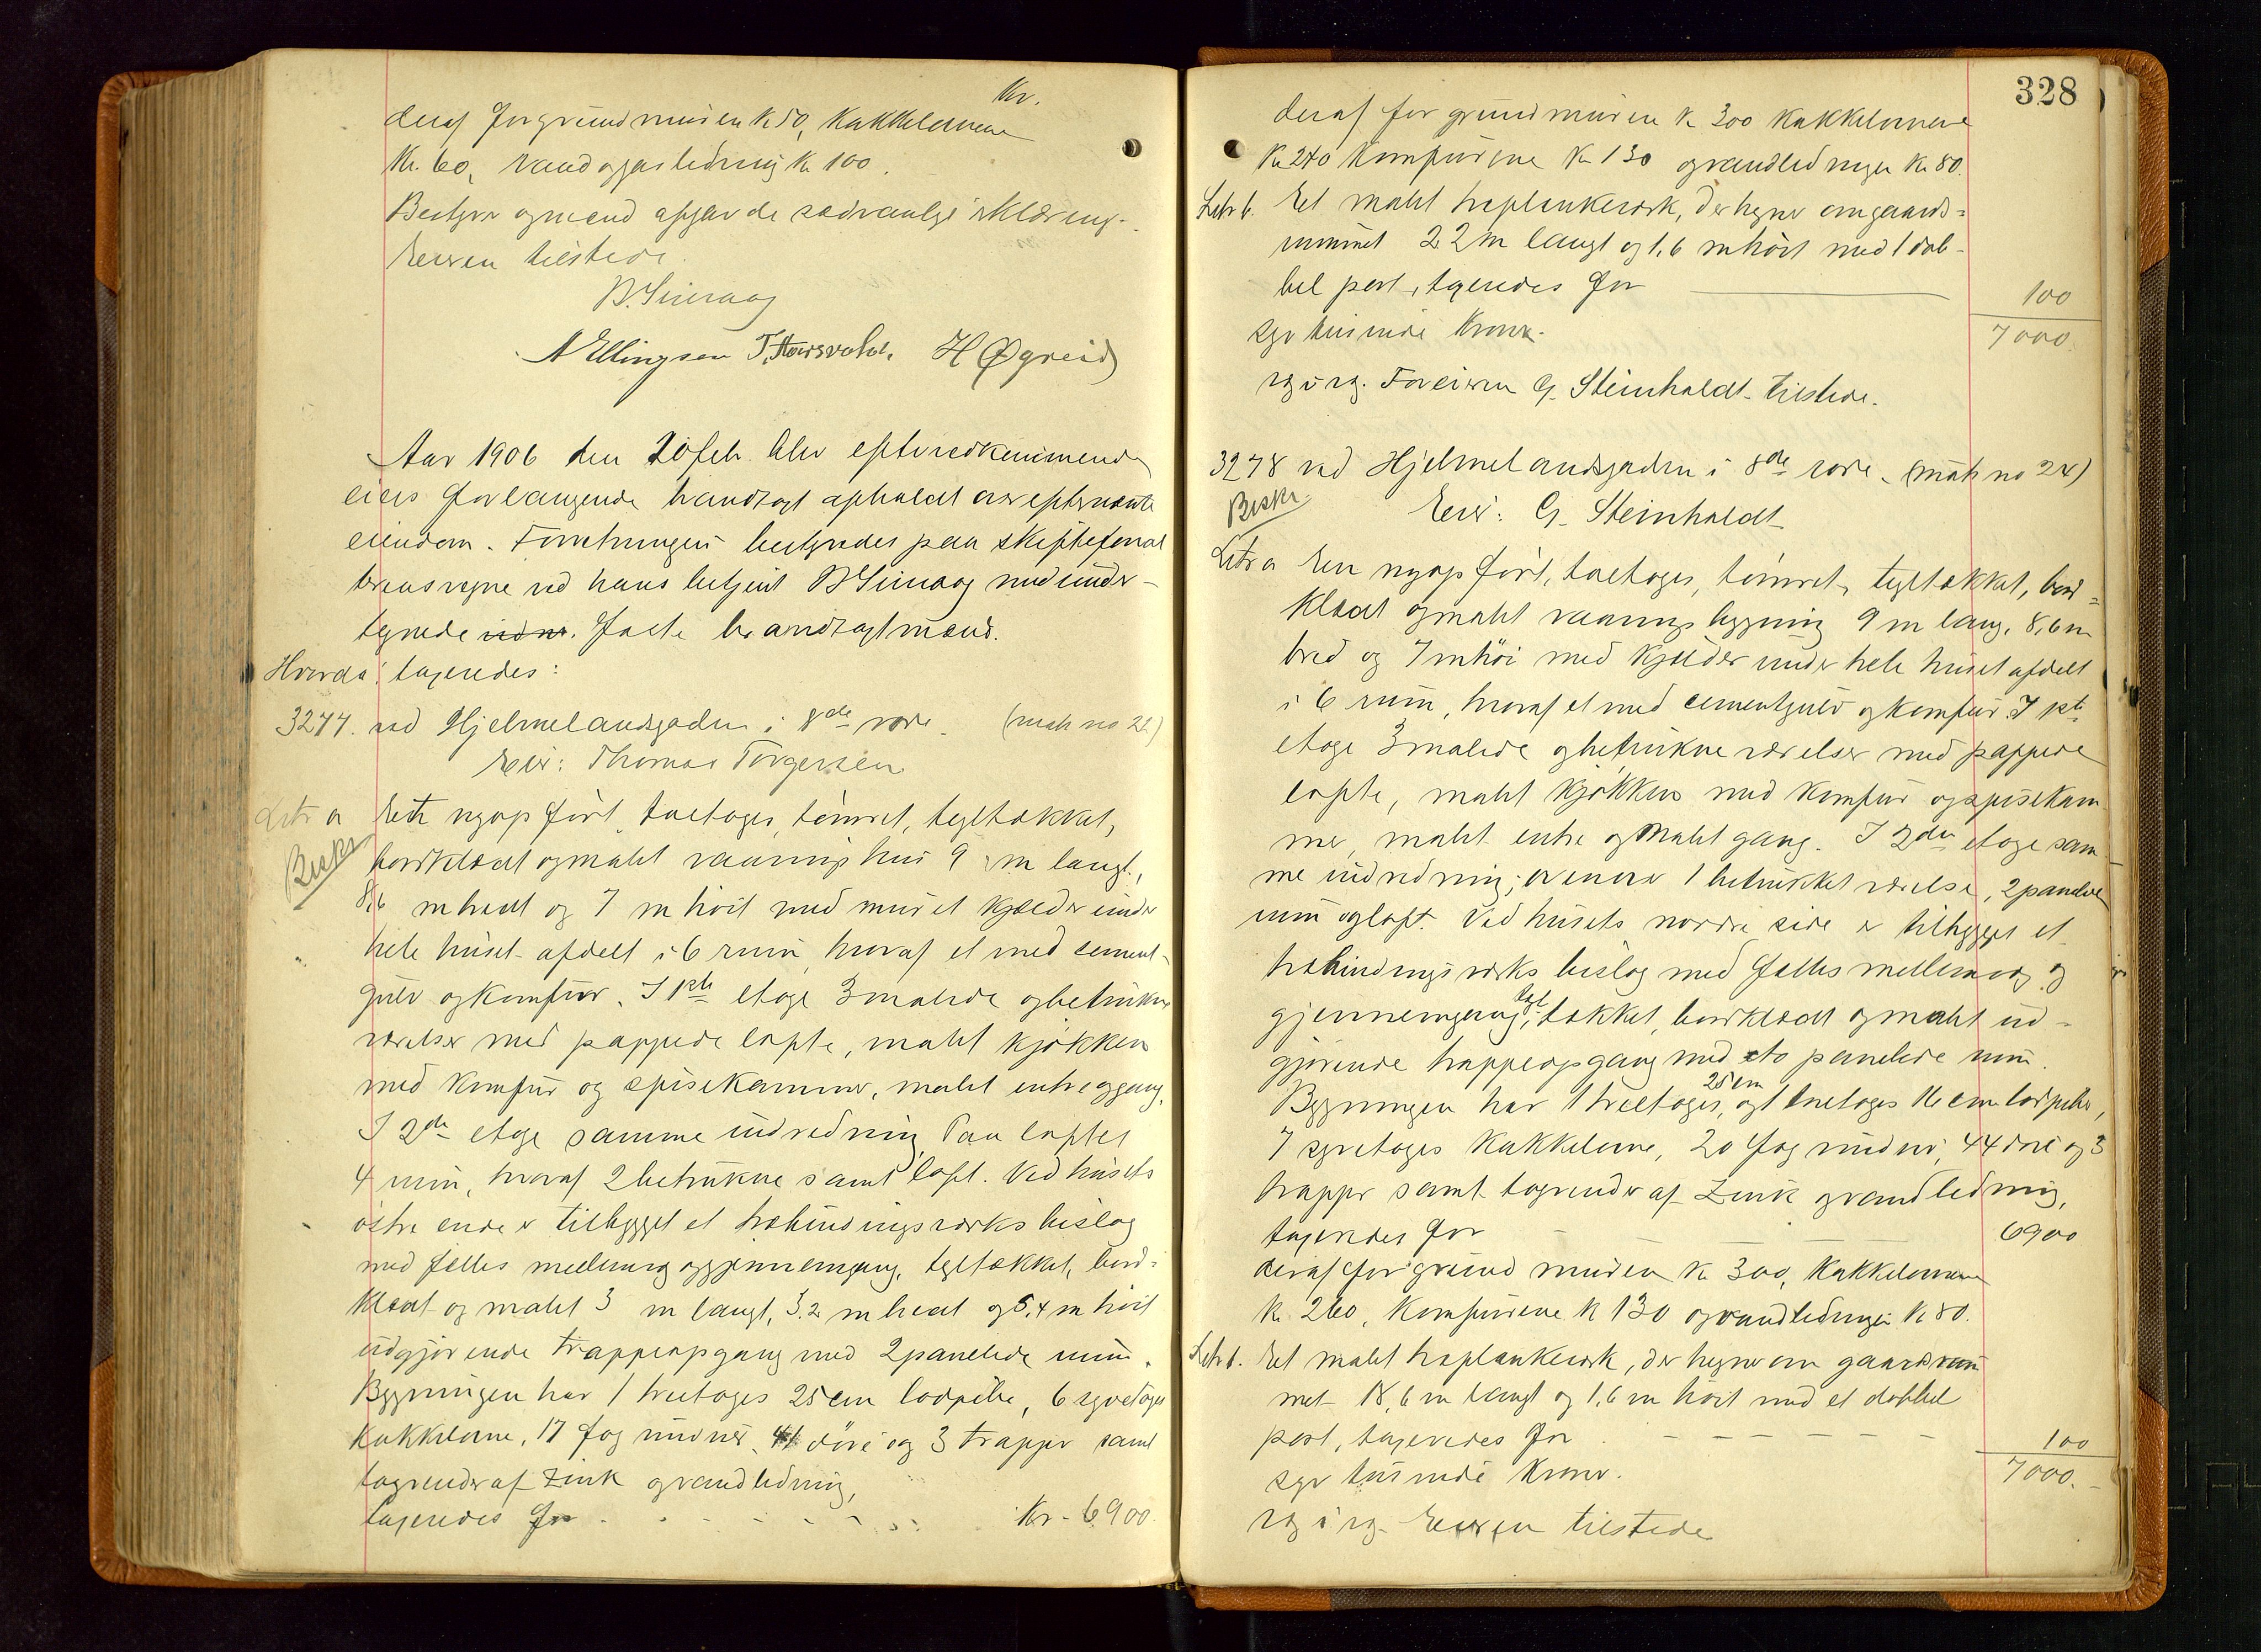 Kr.
deraf for grundmuren K 50, Kakkelovnene
Kr. 60, vand og gasledning Kr 100.
Bestyrer og mænd afgav de sædvanlige erklæring.
Eieren tilstede.
A Ellingsen T. Housvold. H Øgreid
Aar 1906 den 20 feb. blev efter vedkommende
eiers forlangende brandtagt afholdt over efternævnte
eiendom. Forretningen bestyredes paa skiftefor-
terens vegne ved hans betjent med under-
tegnede faste brandtagtmænd.
Hvorda taxeredes:
3277. ved Hjelmelandsgaden i 8de rode. (math no 22)
Eier: Thomas Torgersen
Litr a Et nyopført, toetages, tømret, tegltækket,
Beskr bordklædt og malet vaaningshus 9 m langt,
8,6 m bredt og 7 m høit med muret kjælder under
hele huset afdelt i 6 rum, hvoraf et med cement-
gulv og komfur. I 1ste etage 3 malede og betrukne
værelser med pappede lofte, malet kjøkken
med komfur og spisekammer, malet entre og gang.
I 2den etage samme indredning. Paa loftet
4 rum, hvoraf 2 betrukne samt loft. Ved husets
østre ende er tilbygget et træbindingsværks bislag
med fælles mellemvæg og gjennemgang, tegltækket, bord-
klædt og malet 3 m langt, 3.2 m bredt og 5,4 m høit
udgjørende trappeopgang med 2 panelede rum.
Bygningen har 1 treetages 25 cm lodpibe, 6 syvetages
Kakkelovne, 17 fag vinduer, 41 døre og 3 trapper samt
tagrender af zink og vandledning,
taxeredes for - - - - - Kr. 6900.
328
deraf for grundmuren Kr 300 Kakkelovnene
Kr 240 Komfurene Kr 130 og vandledningen Kr 80.
Litr b. Et malet træplankeværk, der hegner om gaards-
rummet 22 m langt og 1,6 m høit med 1 dob-
bel port, taxeredes for 100
syv tusinde Kroner. 7000.
For eieren G. Steinholdt tilstede.
3278 ved Hjelmelandsgaden i 8de rode. (math no 24)
Beskr. Eier: G. Steinholdt
Litr a En nyopført, toetages, tømret, tegltækket, bord-
klædt og malet vaaningsbygning 9 m lang, 8,6 m
bred og 7 m høi med kjælder under hele huset afdelt
i 6 rum, hvoraf et med cementgulv og komfur. I 1ste
etage 3 malede og betrukne værelser med pappede
lofte, malet kjøkken med komfur og spisekam-
mer, malet entre og malet gang. I 2den etage sam-
me indredning; ovenover 1 betrukket værelse, 2 panelede
rum og loft. Ved husets nordre side er tilbygget et
træbindingsværks bislag med fælles mellemvæg og
gjennemgang, tegl-tækket, bordklædt og malet ud-
gjørende trappeopgang med to panelede rum.
Bygningen har 1 treetages 25 cm og 1 enetages 16 cm lodpiber,
7 syvetages Kakkelovne, 20 fag vinduer, 44 døre og 3
trapper samt tagrender af zink og vandledning,
taxeredes for - - - 6900
deraf for grundmuren Kr 300, Kakkelovnene
Kr. 260, Komfurene Kr 130 og vandledningen Kr 80.
Litr b. Et malet træplankeværk, der hegner om gaardsrum-
met 18,6 m langt og 1,6 m høit med et dobbel
port, taxeredes for - - - - - - 100
syv tusinde Kroner. 7000.-
Eieren tilstede